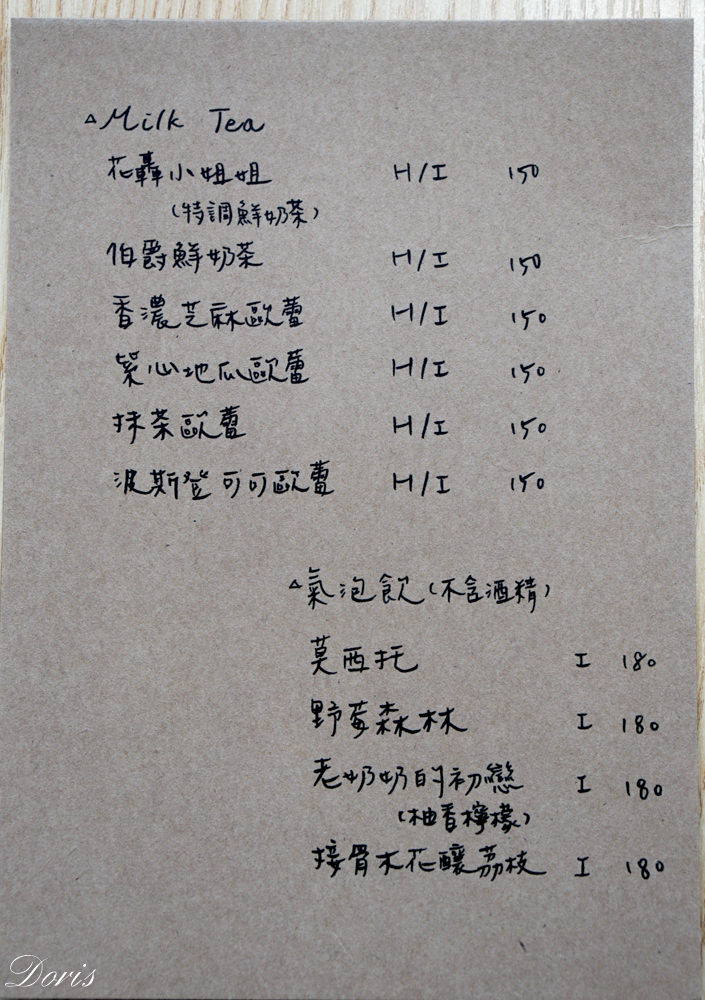 △Milk Tea
花轟小姐姐 H/I 150
(特調鮮奶茶)
伯爵鮮奶茶 H/I 150
香濃芝麻歐蕾 H/I 150
紫心地瓜歐蕾 H/I 150
抹茶歐蕾 H/I 150
波斯登可可歐蕾 H/I 150
△氣泡飲(不含酒精)
莫西托 I 180
野莓森林 I 180
老奶奶的初戀 I 180
(柚香檸檬)
接骨木花釀荔枝 I 180
Doris